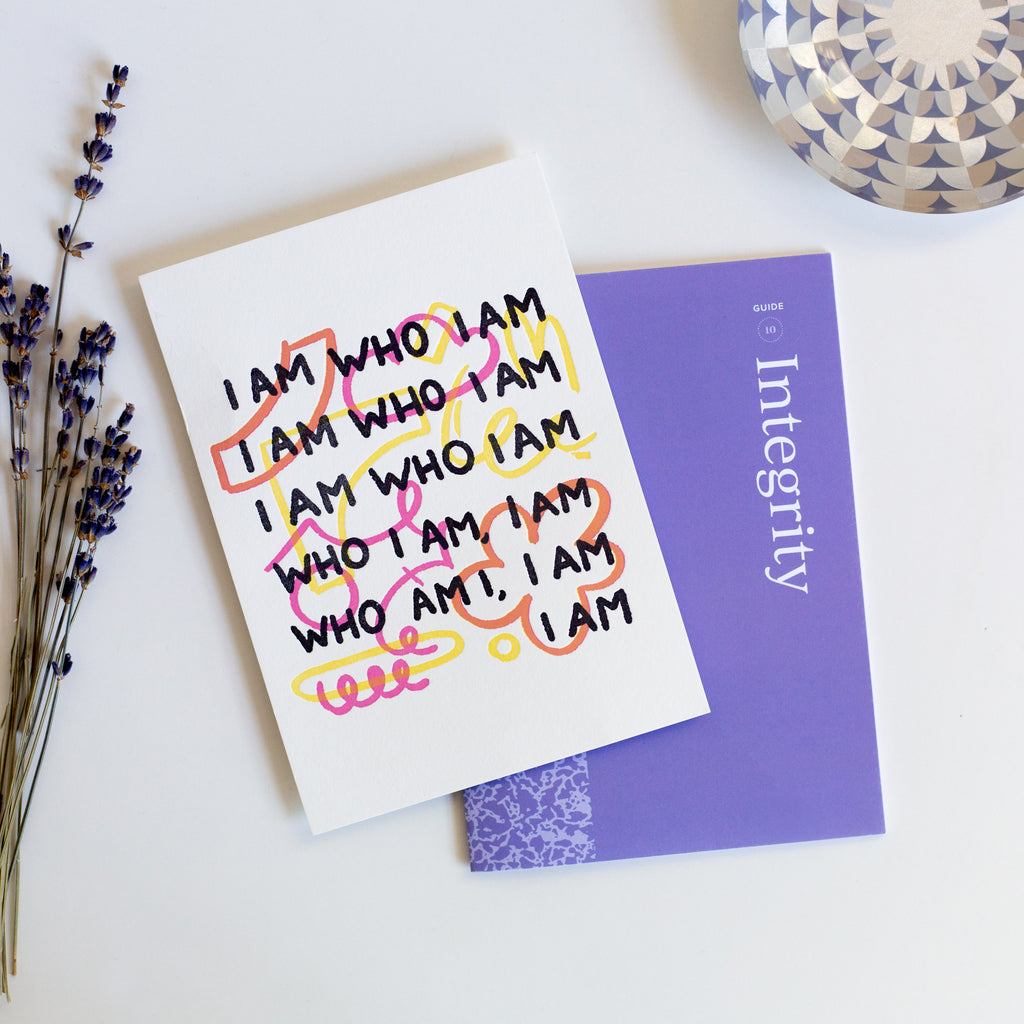 I AM WHO I AM
I AM WHO I AM
I AM WHO I AM
WHO I AM, I AM
WHO AM I, I AM
I AM
GUIDE
10
Integrity